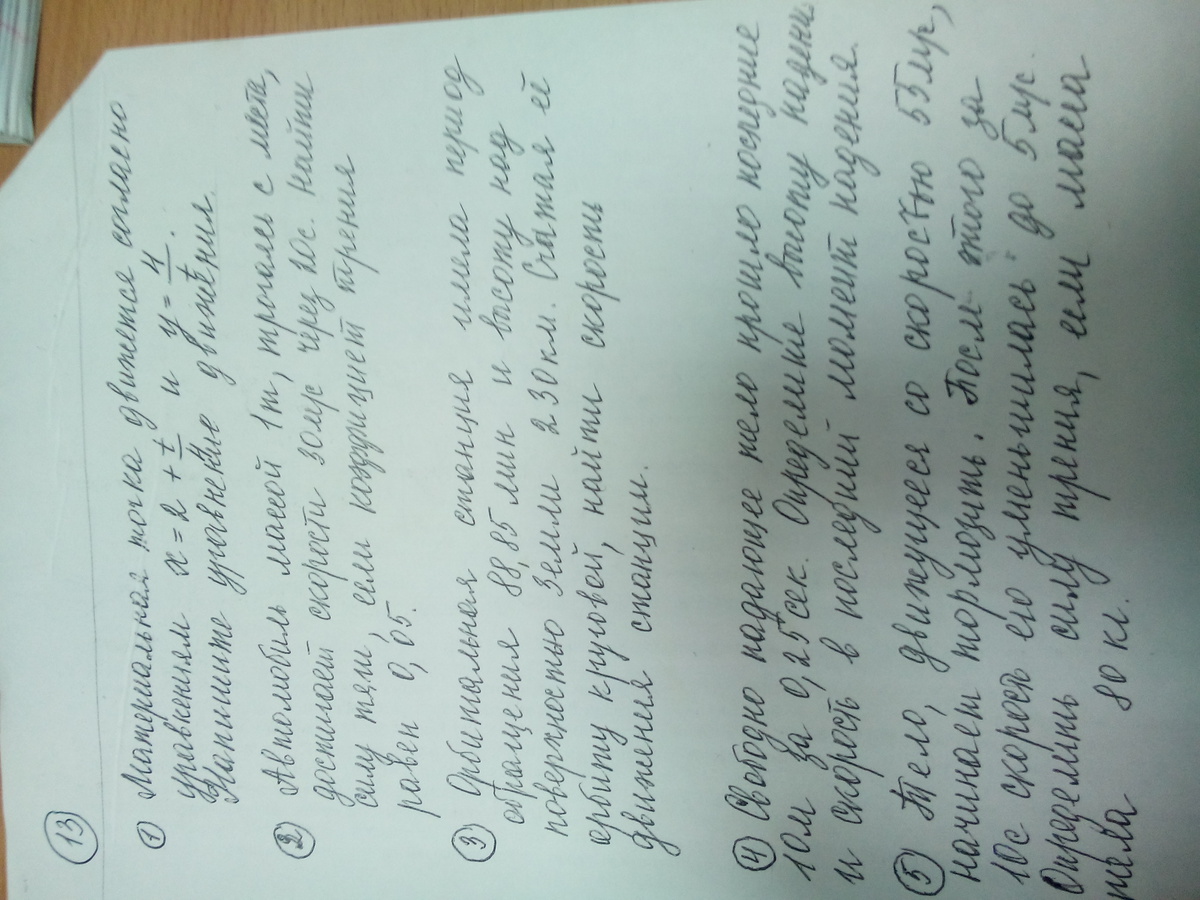 13
1 Материальная точка движется согласно
уравнениям x = 2 + t и y = 4/t.
Напишите уравнение движения.
2 Автомобиль массой 1т, трогаясь с места,
достигает скорости 30м/с через 20с. Найти
силу тяги, если коэффициент трения
равен 0,05.
3 Орбитальная станция имела период
обращения 88,85 мин и высоту над
поверхностью Земли 230км. Считая её
орбиту круговой, найти скорость
движения станции.
4 Свободно падающее тело прошло последние
10м за 0,25сек. Определите высоту падени
и скорость в последний момент падения.
5 Тело, движущееся со скоростью 55м/с,
начинает тормозить. После этого за
10с скорость его уменьшилась до 5м/с.
Определить силу трения, если масса
тела 80 кг.